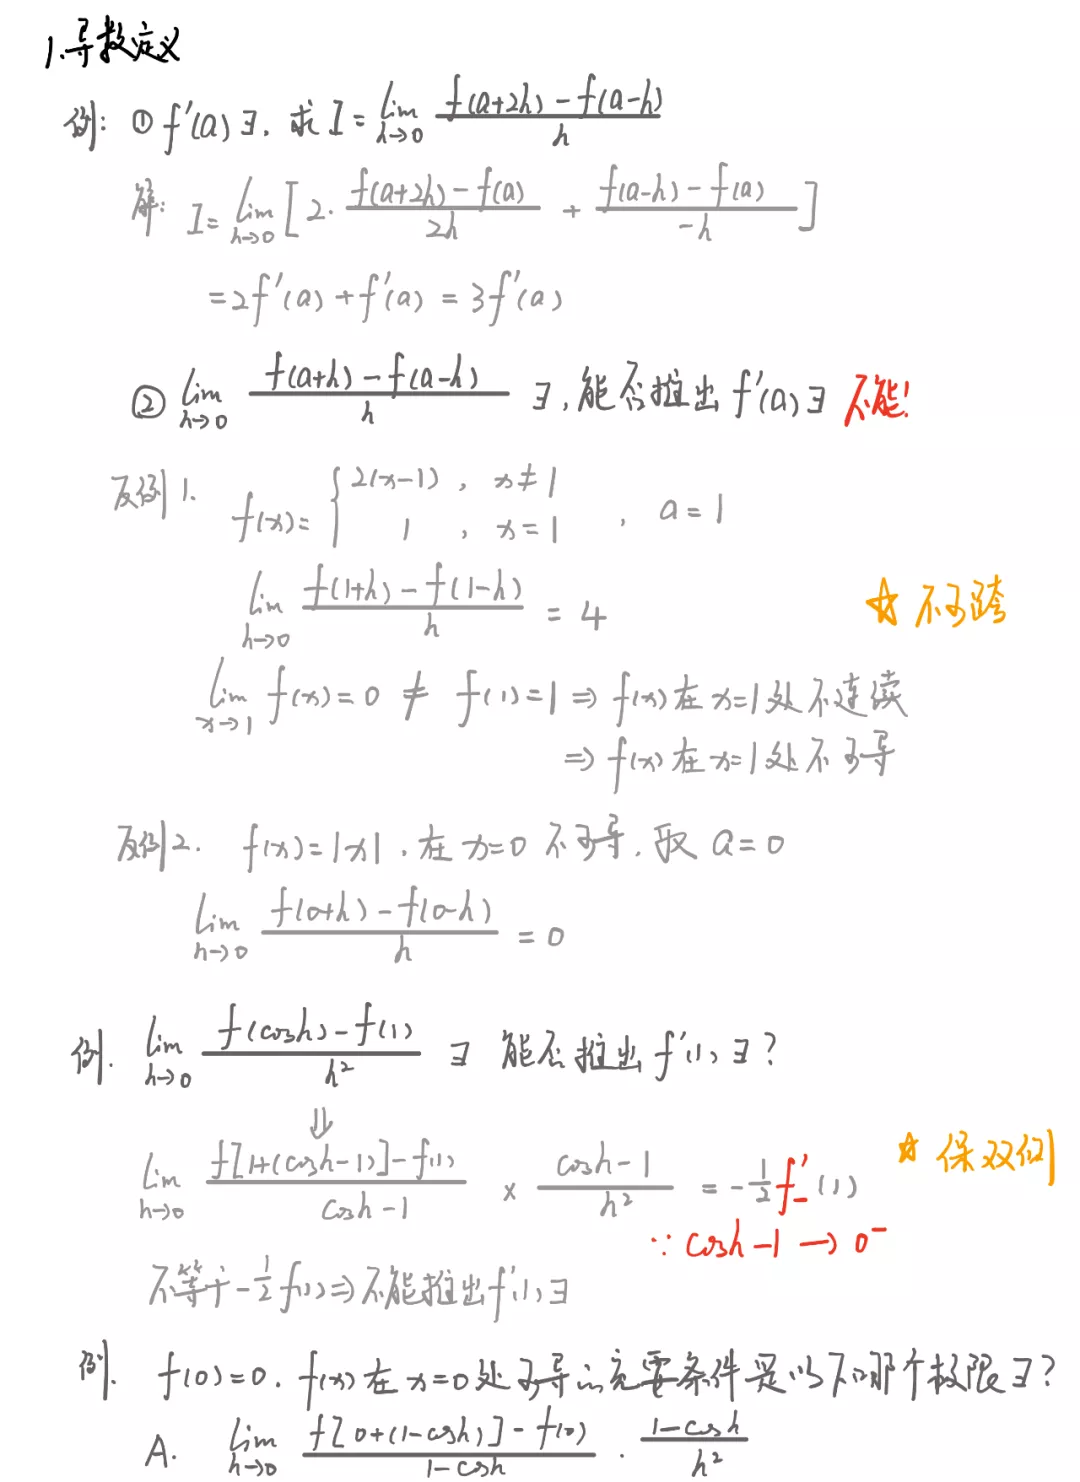 1.导数定义
例: ① f'(a)∃, 求 I = lim_{h→0} \frac{f(a+2h)-f(a-h)}{h}
解: I = lim_{h→0} [2·\frac{f(a+2h)-f(a)}{2h} + \frac{f(a-h)-f(a)}{-h}]
=2f'(a)+f'(a) = 3f'(a)
② lim_{h→0} \frac{f(a+h)-f(a-h)}{h} ∃,能否推出 f'(a)∃ 不能!
反例1. f(x)= { 2(x-1), x≠1
1, x=1 , a=1
lim_{h→0} \frac{f(1+h)-f(1-h)}{h} = 4 ☆ 不可跨
lim_{x→1} f(x)=0 ≠ f(1)=1 ⇒ f(x)在x=1处不连续
⇒ f(x)在x=1处不可导
反例2. f(x)=|x|,在x=0不可导,取 a=0
lim_{h→0} \frac{f(0+h)-f(0-h)}{h} = 0
例. lim_{h→0} \frac{f(cosh)-f(1)}{h²} ∃ 能否推出 f'(1)∃?
⇓
lim_{h→0} \frac{f[1+(cosh-1)]-f(1)}{cosh-1} × \frac{cosh-1}{h²} = -\frac{1}{2}f'_-(1) ☆ 保双侧
∵ cosh-1 → 0⁻
不等于 -\frac{1}{2}f(1) ⇒ 不能推出f'(1)∃
例. f(0)=0. f(x)在x=0处可导的充要条件是以下哪个极限∃?
A. lim_{h→0} \frac{f[0+(1-cosh)]-f(0)}{1-cosh} · \frac{1-cosh}{h²}